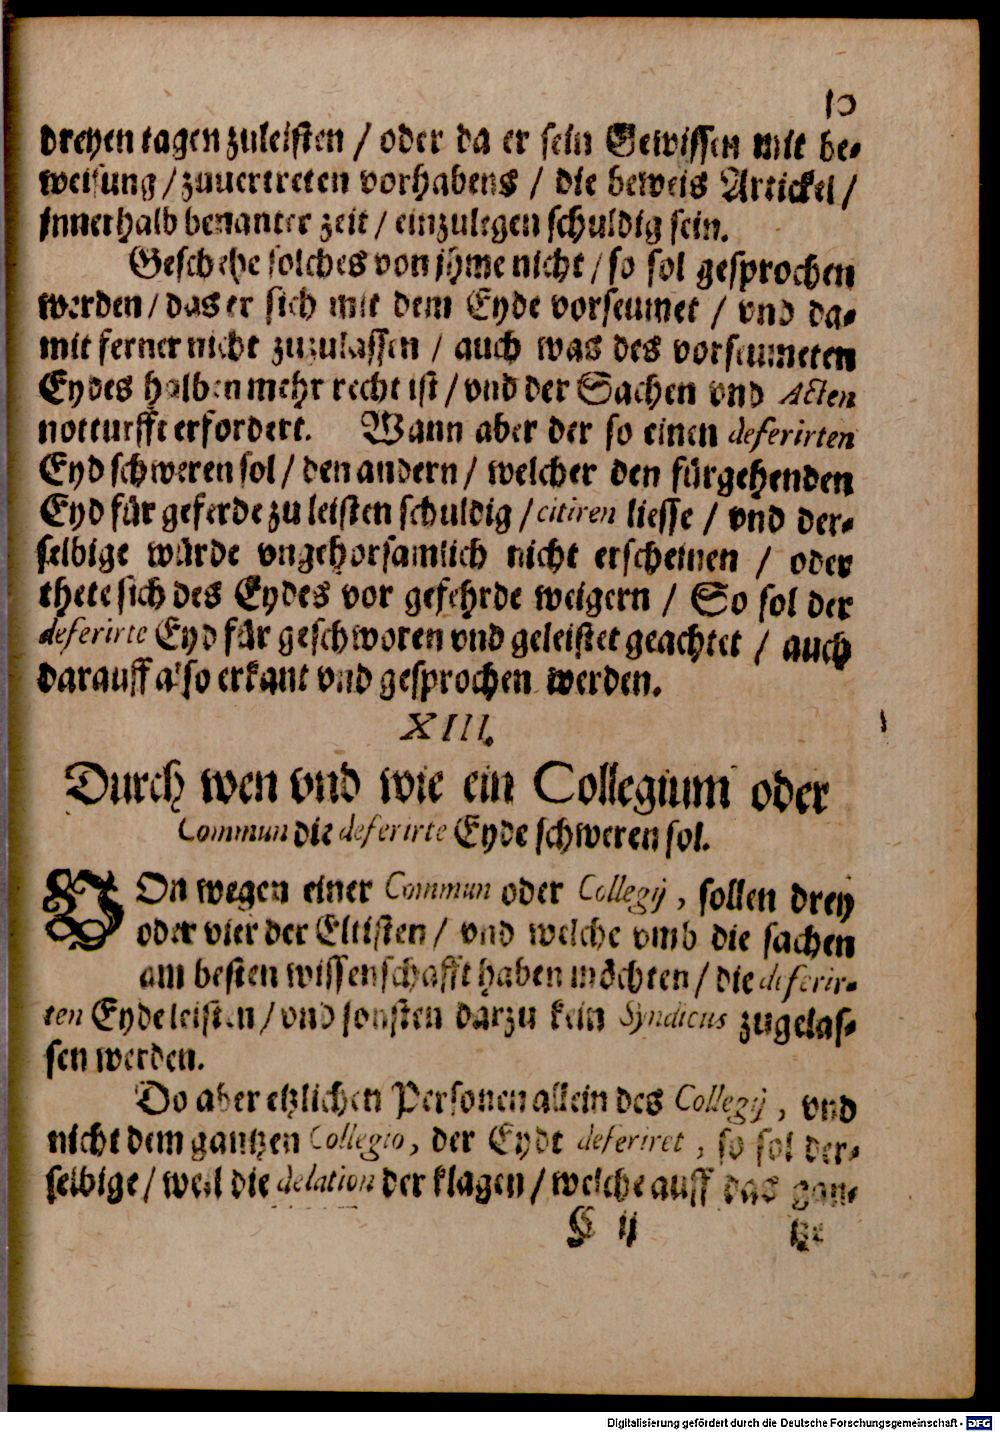 10
dreyen tagen zuleisten / oder da er sein Gewissen mit be-
weisung / zuuertreten vorhabens / die beweis Artickel /
innerhalb benanter zeit / einzulegen schuldig sein.
Geschehe solches von jhme nicht / so sol gesprochen
werden / das er sich mit dem Eyde vorseumet / vnd da-
mit ferner nicht zuzulassen / auch was des vorseumeten
Eydes halben mehr recht ist / vnd der Sachen vnd Acten
notturfft erfordert. Wann aber der so einen deferirten
Eyd schweren sol / den andern / welcher den fürgehenden
Eyd für geferde zu leisten schuldig / citiren liesse / vnd der-
selbige würde vngehorsamlich nicht erscheinen / oder
thete sich des Eydes vor gefehrde weigern / So sol der
deferirte Eyd für geschworen vnd geleistet geachtet / auch
darauff also erkant vnd gesprochen werden.
XIII.
Durch wen vnd wie ein Collegium oder
Commun die deferirte Eyde schweren sol.
VOn wegen einer Commun oder Collegij, sollen drey
oder vier der Eltisten / vnd welche vmb die sachen
am besten wissenschafft haben möchten / die deferir-
ten Eyde leisten / vnd sonsten darzu kein Syndicus zugelas-
sen werden.
Do aber etzlichen Personen allein des Collegij, vnd
nicht dem gantzen Collegio, der Eydt deferiret, so sol der-
selbige / weil die delation der klagen / welche auff das gan-
ij tze
Digitalisierung gefördert durch die Deutsche Forschungsgemeinschaft - DFG